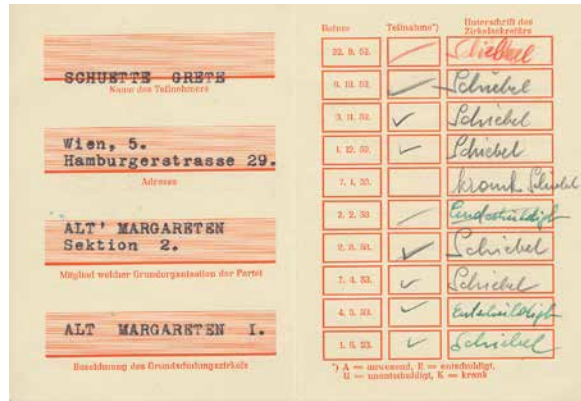 SCHUETTE GRETE
Name des Teilnehmers
Wien, 5.
Hamburgerstrasse 29.
Adresse
ALT' MARGARETEN
Sektion 2.
Mitglied welcher Grundorganisation der Partei
ALT MARGARETEN I.
Bezeichnung des Grundschulungszirkels
Datum Teilnahme*) Unterschrift des Zirkelsekretärs
22. 9. 52. Schiebel
Schiebel
3. 11. 52. Schiebel
1. 12. 52. Schiebel
7. 1. 53. krank Schiebel
2. 2. 53. Entschuldigt
2. 3. 53. Schiebel
7. 4. 53. Schiebel
4. 5. 53. Entschuldigt
1. 6. 53. Schiebel
*) A = anwesend, E = entschuldigt,
U = unentschuldigt, K = krank